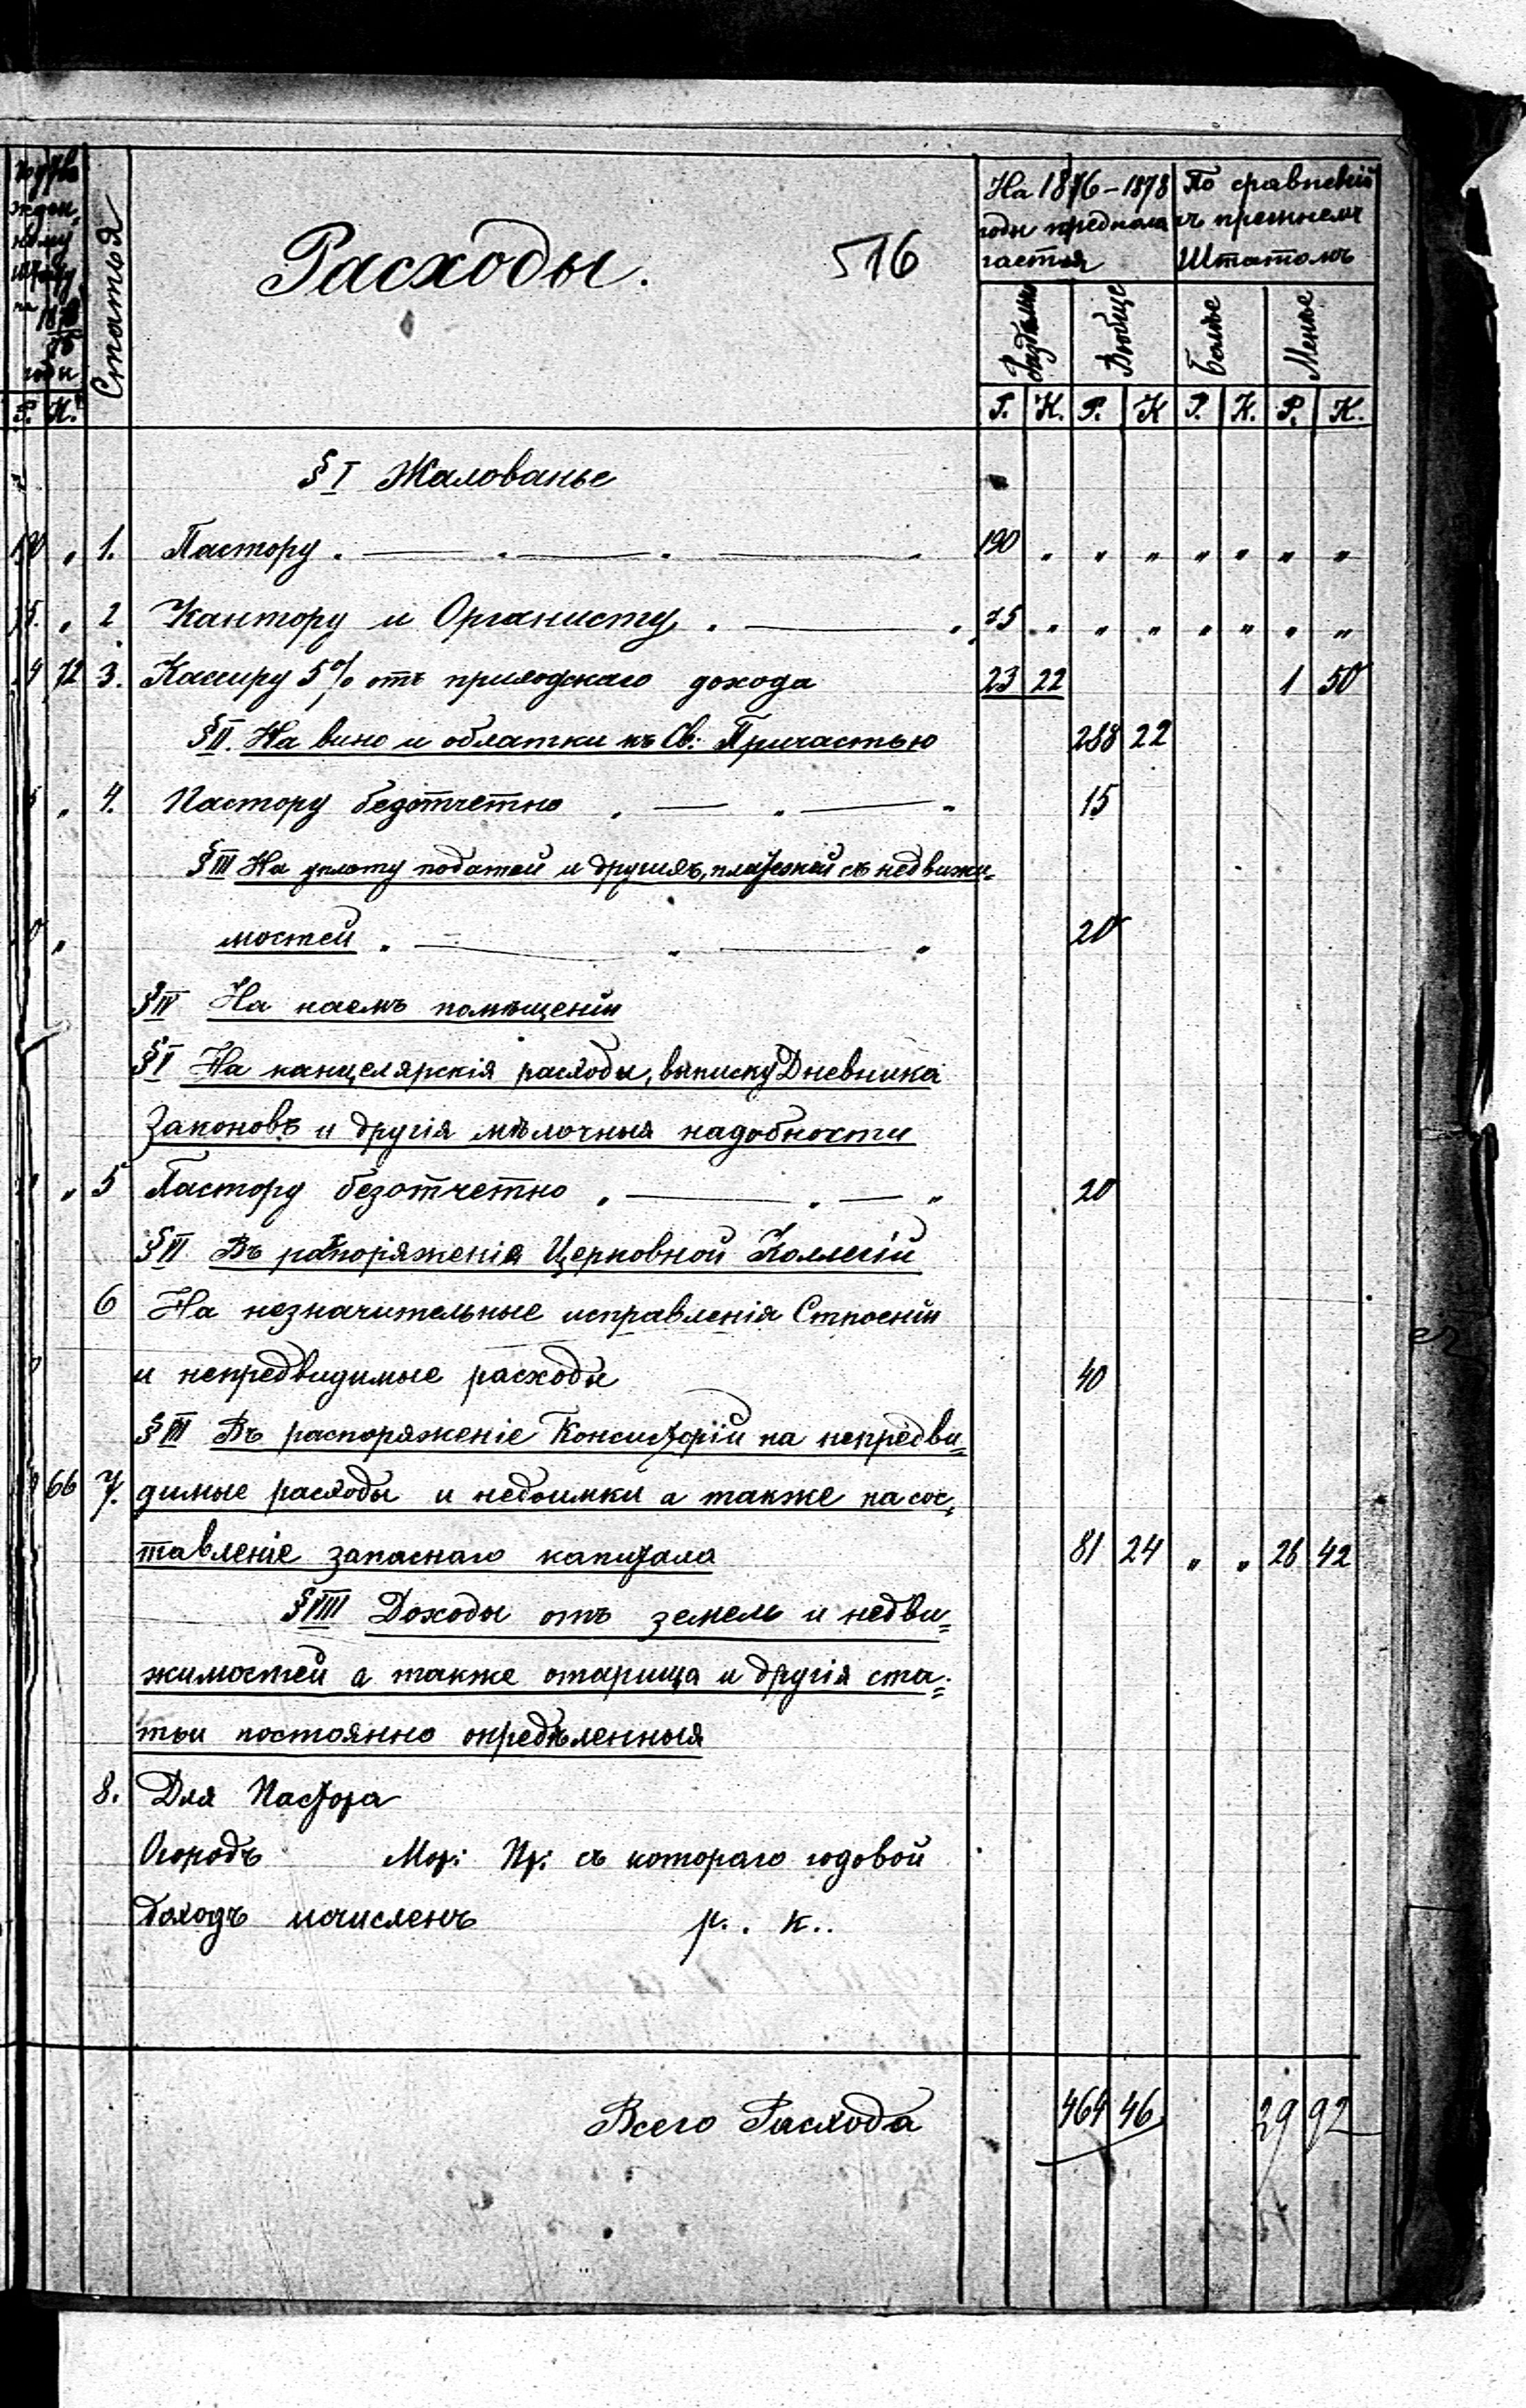 ному
на 18
годы
Статья
Расходы.
516
На 1876-1878 По сравненію
годы предпола съ прежнемъ
гается Штатомъ
Раздѣльно Вообще Болѣе Менѣе
Р. К. Р. К. Р. К Р. К. Р. К.
§ I Жалованье
190 „ 1. Пастору . — . — . — . 190 „ „ „ „ „ „ „
75. „ 2 Кантору и Органисту . — . 75 „ „ „ „ „ „ „
24 72 3. Кассиру 5% отъ приходскаго дохода 23 22 1 50
§ II. На вино и облатки къ Св: Причастью 288 22
„ 4. Пастору безотчетно . — . — „ 15
§ III На уплату податей и другихъ, платежей съ недвижи-
„ мостей . — „ — „ 20
§ IV На наемъ помѣщеній
§ V На канцелярскія расходы, выписку Дневника
Законовъ и другія мѣлочныя надобности
„ 5 Пастору безотчетно . — . — „ 20
§ VI Въ распоряженія Церковной Коллегіи
6 На незначительные исправленія Строеній
и непредвидимые расходы 40
§ VII Въ распоряженіе Консисторіи на непредви=
66 7. димые расходы и недоимки а также на сос,
тавленіе запаснаго капитала 81 24 „ „ 26 42
§ VIII Доходы отъ земель и недви=
жимостей а также отарища и другія ста=
тьи постоянно опредѣленныя
8. Для Пастора
Огородъ Мор: Пр: съ котораго годовой
доходъ исчисленъ р. . к..
Всего Расхода 464 46 29 92